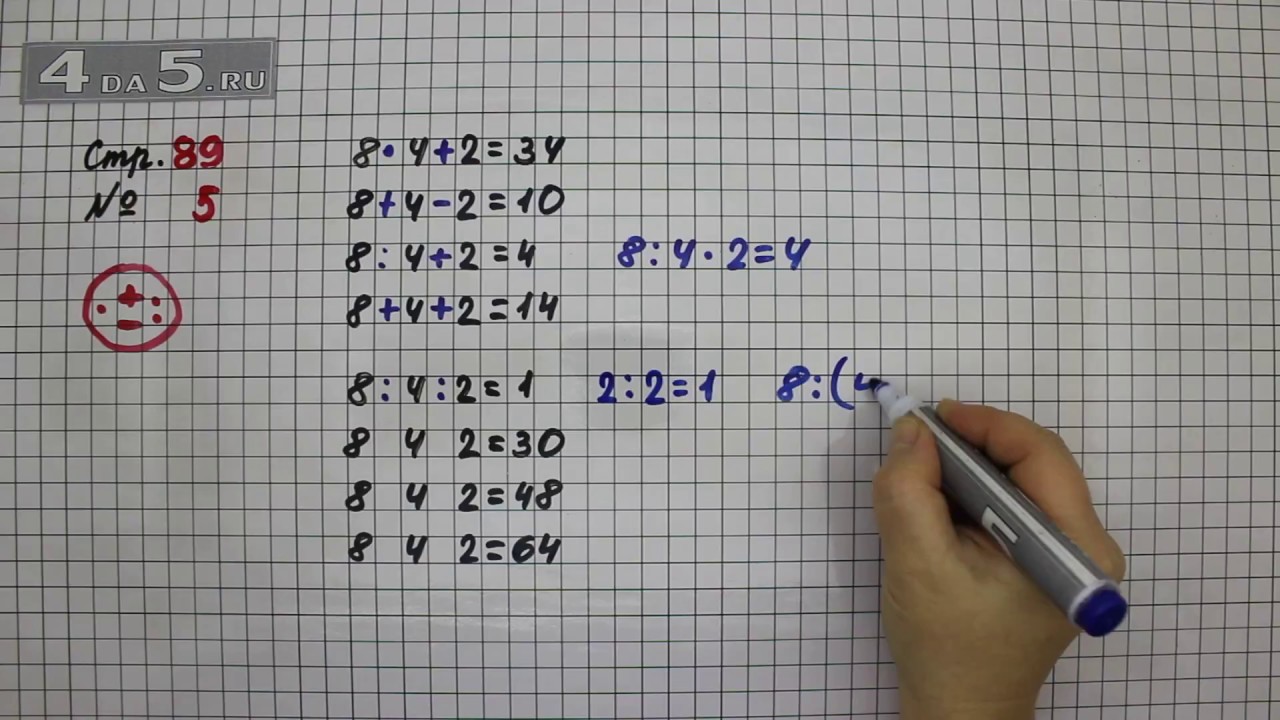 4 DA 5.RU
Стр. 89
№ 5
+
· :
−
8 · 4 + 2 = 34
8 + 4 − 2 = 10
8 : 4 + 2 = 4 8 : 4 · 2 = 4
8 + 4 + 2 = 14
8 : 4 : 2 = 1 2 : 2 = 1 8 : (4
8 4 2 = 30
8 4 2 = 48
8 4 2 = 64